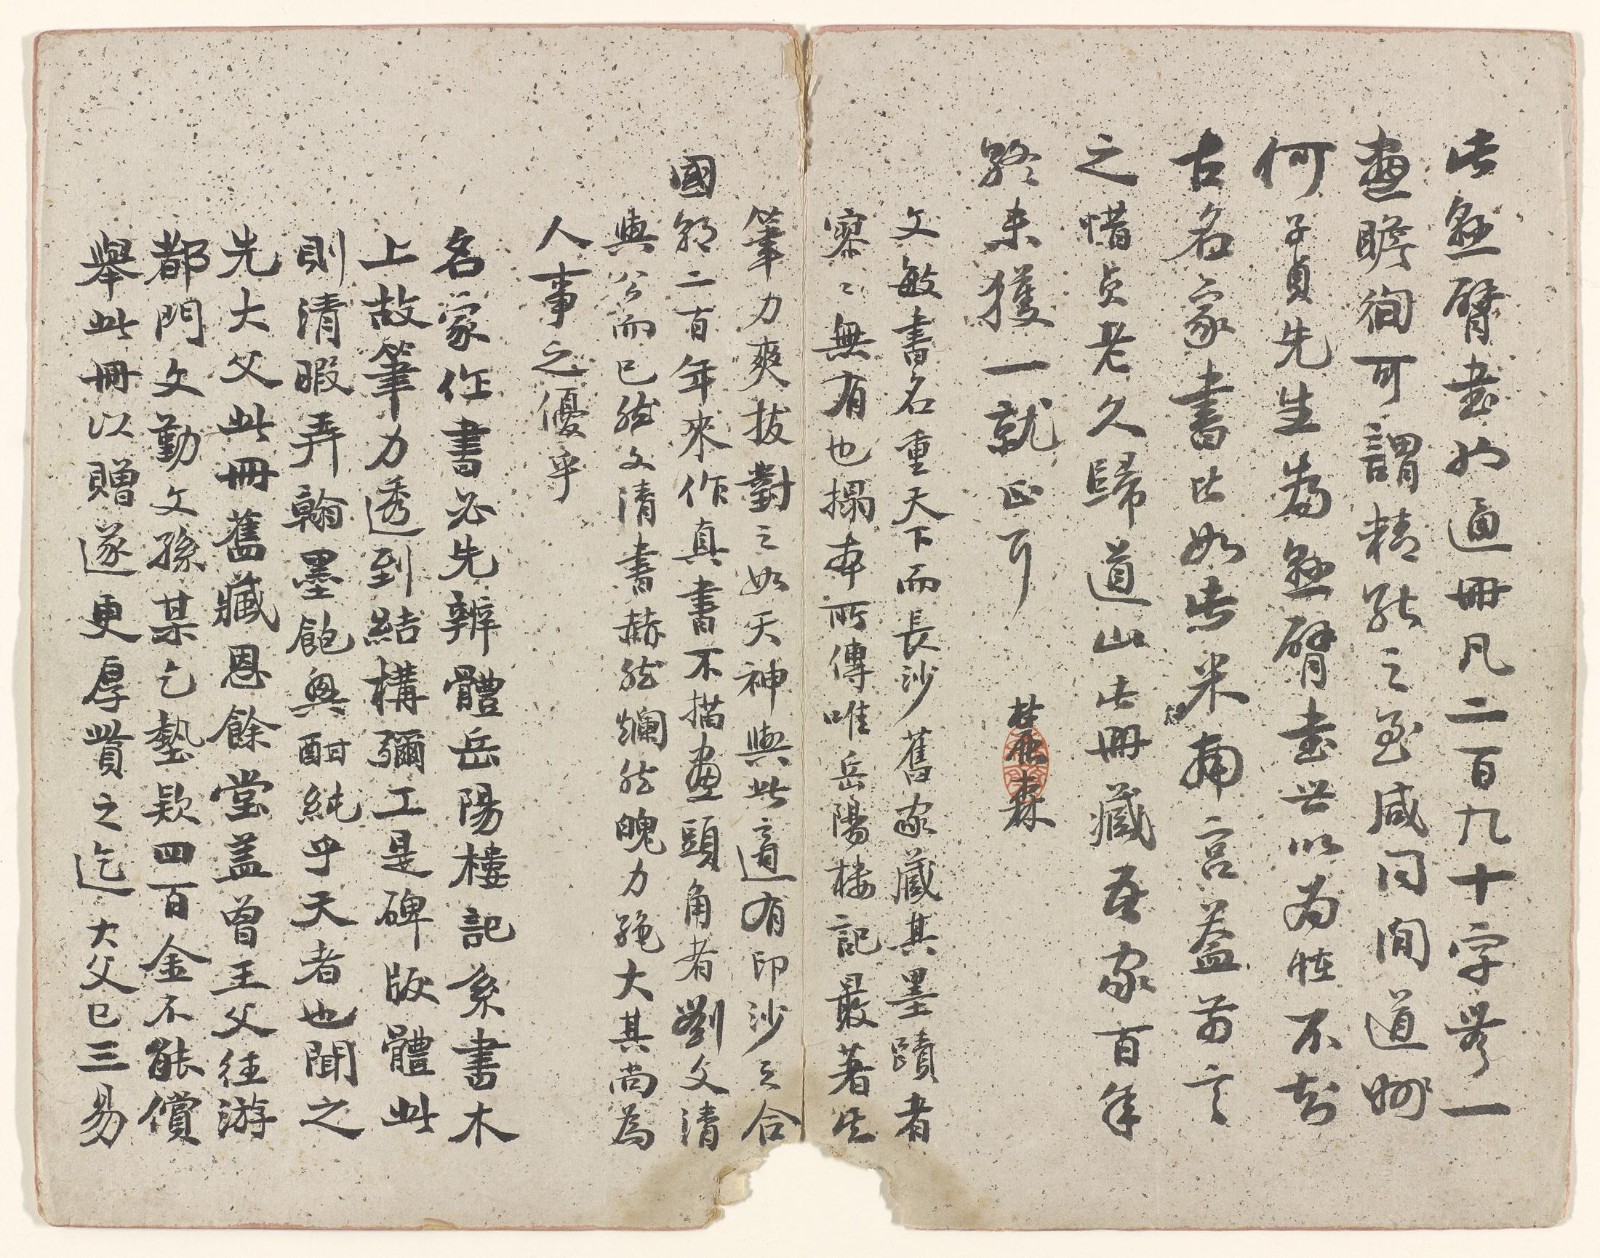 此懸臂書也通冊凡二百九十字無一
畫瞻徇可謂精能之至咸同間道州
何子貞先生為懸臂書世以為怪不知
古名家書比比如此米南宮蓋嘗言
之惜貞老久歸道山此冊藏吾家百年
終未獲一就正耳
文敏書名重天下而長沙舊家藏其墨蹟者
寥寥無有也搨本所傳唯岳陽樓記最著生
筆力爽拔對之如天神與此適有印沙之合
國朝二百年來作真書不描畫頭角者劉文清
與公而已然文清書赫然爛然魄力絕大其尚為
人事之優乎
名家作書必先辨體岳陽樓記系書木
上故筆力透到結構彌工是碑版體此
則清暇弄翰墨飽興酣純乎天者也聞之
先大父此冊舊藏恩餘堂蓋曾王父往游
都門文勤文孫某乞墊款四百金不能償
舉此冊以贈遂更厚貲之迄大父已三易